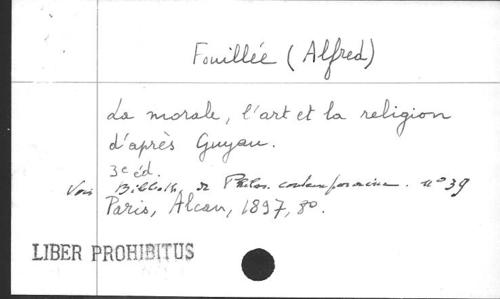 Fouillée (Alfred)
La morale, l'art et la religion
d'après Guyau.
3e éd.
Voir Biblioth. de Philos. contemporaine. n° 39
Paris, Alcan, 1897, 8°.
LIBER PROHIBITUS